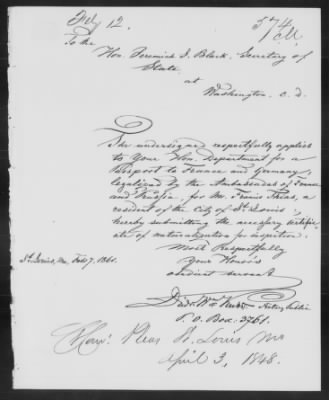 Feby 12.
574
To the
Hon. Jeremiah S. Black, Secretary of
State.
at
Washington. C. D.
The undersigned respectfully applies
to Your Hon. Department for a
Passport to France and Germany,
legalized by the Ambassadors of France
and Prussia, for Mr. Francis, a
resident of the City of St. Louis,
hereby submitting the necessary certific-
ate of naturalization for inspection.
Most Respectfully
Your Honor's
obedient servant
St. Louis, Mo Feb 7. 1861.
Notary Public
P. O. Box: 3761.
St. Louis Mo
April 3, 1848.